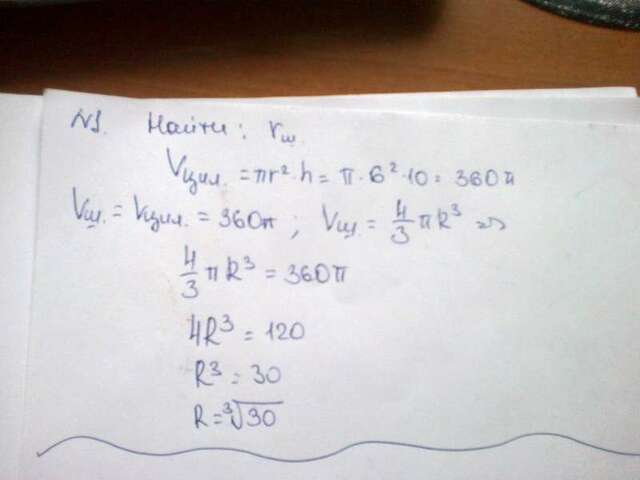 №1. Найти: rш.
Vцил. = πr²·h = π·6²·10 = 360π
Vш. = Vцил. = 360π ; Vш. = 4/3 πR³ =>
4/3 πR³ = 360π
4R³ = 120
R³ = 30
R = ³√30